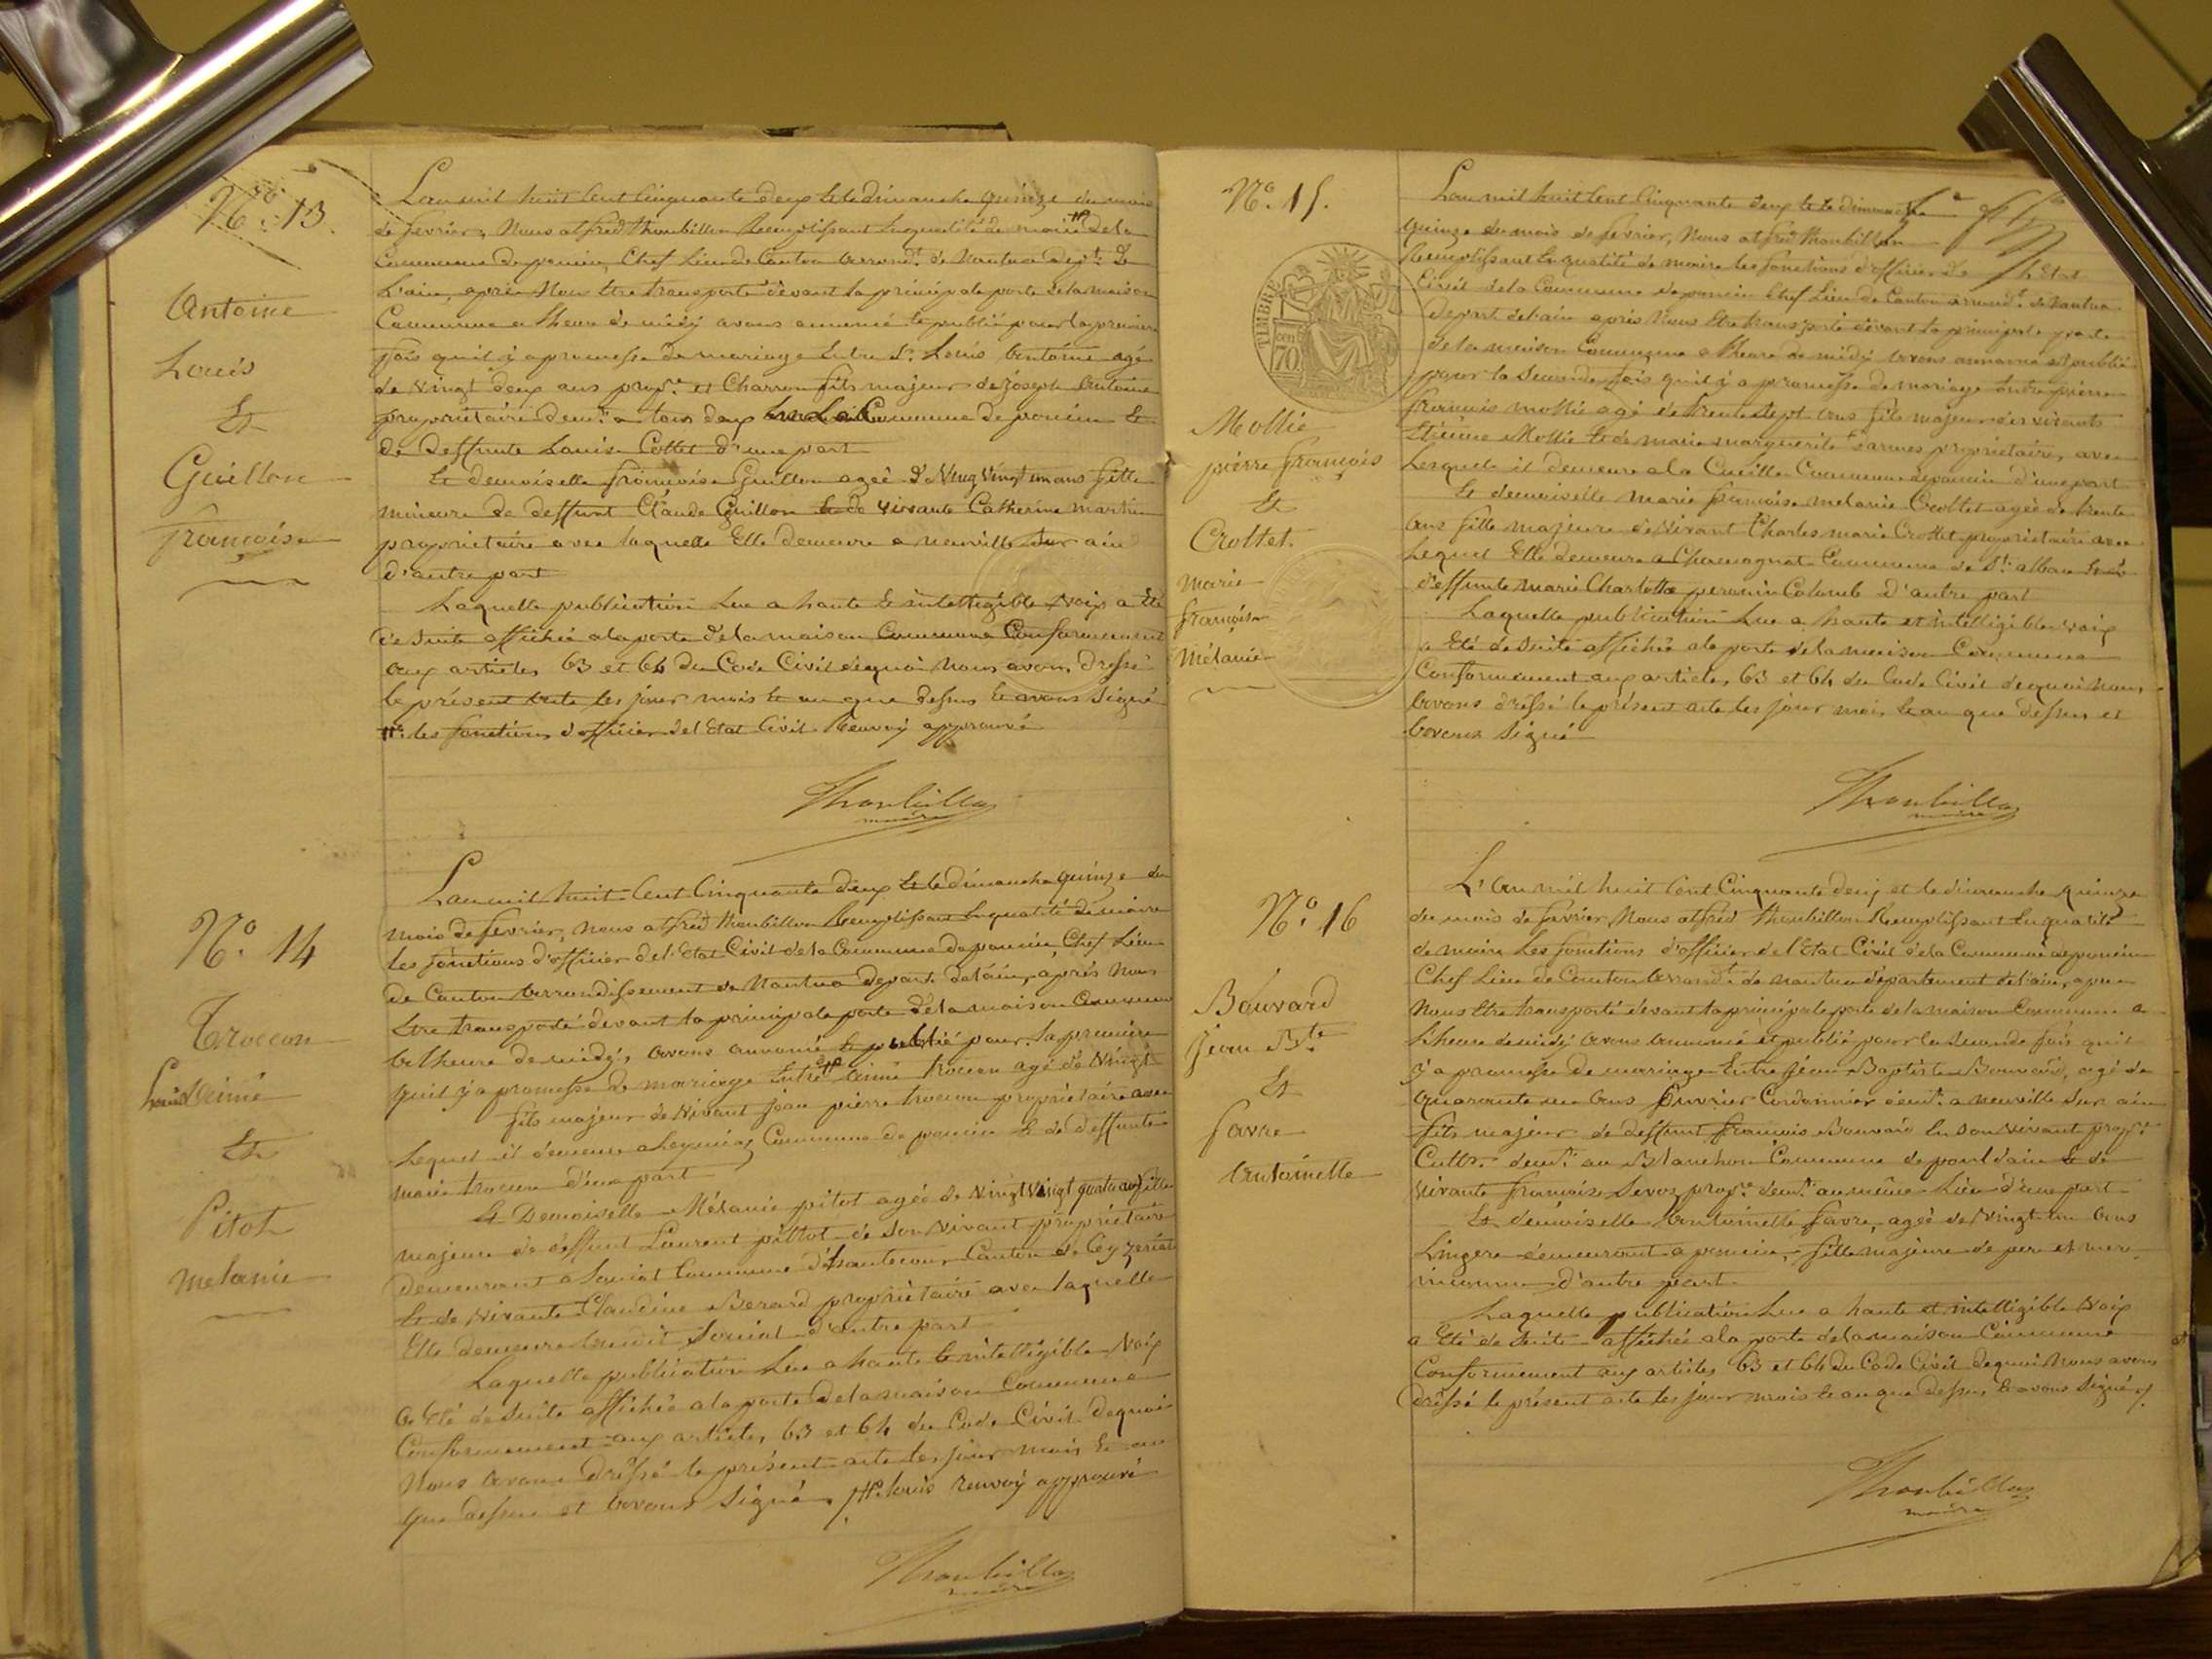 N° 13.
Antoine
Louis
Et
Guillon
françoise
L'an mil huit Cent Cinquante deux Et le dimanche quinze du mois
de fevrier, Nous alfred Thoubillon Remplissant En qualité de maire # de la
Commune de poncin, Chef Lieu de Canton arrond.t de Nantua dep.t de
L'ain, après Nous Etre transporté dévant la principale porte dela maison
Commune a lheure de midy avons annoncé Et publié pour la premiere
fois qu'il y a promesse de mariage Entre S.r Louis Antoine agé
de vingt deux ans prop.re et Charron fils majeur de joseph Antoine
propriétaire dem.t a tous deux En La Commune de poncin Et
de deffunte Louise Cottet d'une part
Et demoiselle françoise Guillon ageé de Vingt un ans fille
mineure de deffunt Claude Guillon Et de vivante Catherine martin
propriétaire avec laquelle Elle demeure a neuville sur ain
d'autre part
Laquelle publication Lue a haute Et intelligible voix a Eté
de Suite affichée a la porte dela maison Commune Conformement
aux articles 63 et 64 du Code Civil de quoi Nous avons dressé
le présent acte les jour mois Et an que dessus Et avons Signé
# les fonctions d'officier del'Etat Civil Renvoy approuvé
Thoubillon
maire
N° 14
Troccon
Louis Aimé
Et
Pitot
melanie
L'an mil huit Cent Cinquante deux Et le dimanche quinze du
mois de fevrier, nous alfred Thoubillon Remplissant En qualité de maire
les fonctions d'officier del'Etat Civil dela Commune de poncin Chef Lieu
de Canton arrondissement de Nantua depart. delain, après Nous
Etre transporté dévant la principale porte dela maison Commune
a lheure de midy, avons annoncé Et publié pour la premiere
quil y a promesse de mariage Entre # aimé trocon agé de vingt
fils majeur de vivant jean pierre trocon propriétaire avec
Lequel il demeure a Leymiaz Commune de poncin Et de deffunte
marie trocon d'une part
Et Demoiselle Mélanie pitot ageé de vingt quatre ans fille
majeure de deffunt Laurent pittot de son vivant propriétaire
demeurant a Soniat Commune d'hautecour Canton de Ceyzeriat
Et de vivante Claudine Berard propriétaire avec laquelle
Elle demeure audit Soniat d'autre part
Laquelle publication Lue a haute Et intelligible Voix
a Eté de Suite affichée a la porte dela maison Commune
Conformement aux articles 63 et 64 du Code Civil dequoi
Nous avons dréssé le présent acte les jour mois Et an
que dessus et avons Signé. # louis renvoy approuvé
Thoubillon
maire
N° 15.
TIMBRE
70 cen
Mollie
pierre françois
Et
Crottet
marie
françoise
Mélanie
L'an mil huit Cent Cinquante deux Et le dimanche
quinze du mois de fevrier, Nous alfred Thoubillon
Remplissant En qualité de maire les fonctions d'officier de L'Etat
Civil dela Commune de poncin Chef Lieu de Canton arrond.t de Nantua
Depart delain après Nous Etre transporté dévant la principale porte
de la maison Commune a lheure de midy avons annoncé Et publié
pour la Seconde fois quil y a promesse de mariage Entre pierre
françois mollie agé de trente Sept ans fils majeur des vivants
Etienne Mollie Et de marie marguerite propriétaires, avec
Lesquels il demeure a la Cueille Commune de poncin d'une part
Et demoiselle marie françoise melanie Crottet ageé de trente
ans fille majeure de vivant Charles marie Crottet propriétaire avec
Lequel Elle demeure a Chamagnat Commune de S.t alban Et de
deffunte marie Charlotte Colomb d'autre part
Laquelle publication Lue a haute et intelligible voix
a Eté de Suite affichée a la porte dela maison Commune
Conformement aux articles 63 et 64 du Code Civil dequoi Nous
avons dréssé le présent acte les jour mois Et an que dessus et
avons Signé
Thoubillon
maire
N° 16
Bouvard
jean Bte
Et
favre
Antoinette
L'an mil huit Cent Cinquante deux et le dimanche quinze
du mois de fevrier, Nous alfred Thoubillon Remplissant En qualité
de maire Les fonctions d'officier de l'Etat Civil dela Commune de poncin
Chef Lieu de Canton arrond.t de nantua departement delain, après
Nous Etre transporté devant la principale porte dela maison Commune a
lheure de midy avons annoncé et publié pour la Seconde fois quil
y a promesse de mariage Entre jean Baptiste Bouvard, agé de
quarante un ans Ouvrier Cordonnier dem.t a neuville Sur ain
fils majeur de deffunt françois Bouvard En Son vivant prop.re
Cultr. dem.t au Blanchon Commune de pont dain Et de
vivante françoise Sevoz prop.re dem.t au même Lieu d'une part
Et demoiselle Antoinette favre, ageé de Vingt un ans
Lingere demeurant a poncin, fille majeure de pere et mere
inconnu d'autre part
Laquelle publication Lue a haute et intelligible Voix
a Eté de Suite affichée a la porte dela maison Commune
Conformement aux articles 63 et 64 du Code Civil dequoi Nous avons
dréssé le présent acte les jour mois Et an que dessus Et avons Signé
Thoubillon
maire